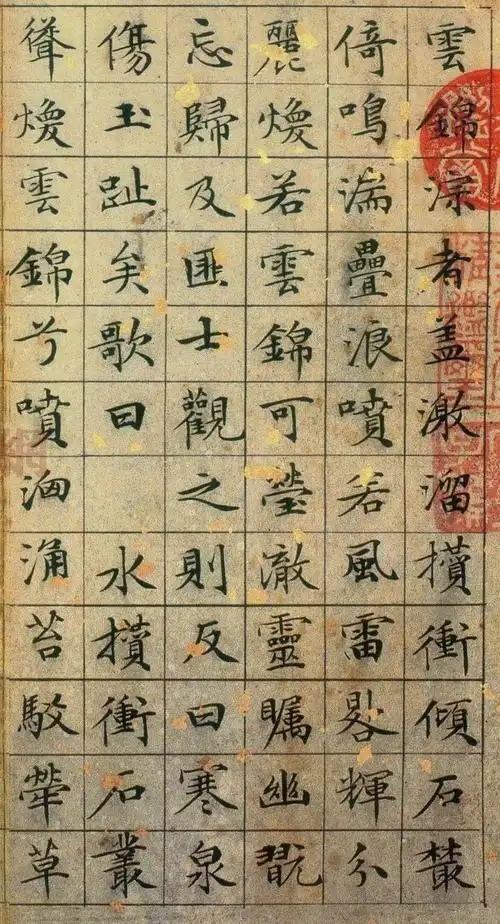 雲錦淙者盖激溜攢衝傾石藂
倚鳴湍疊浪噴若風雷畧輝分
麗煥若雲錦可瑩澈靈矚幽翫
忘歸及匪士觀之則反曰寒泉
傷玉趾矣歌曰 水攢衝石叢
聳煥雲錦兮噴洶涌苔駮犖草